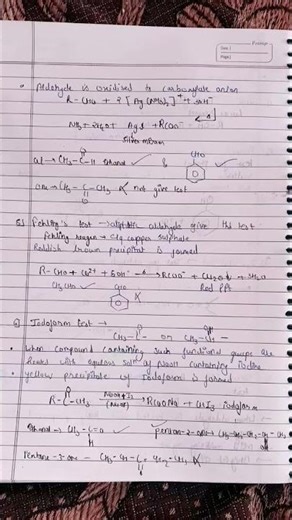 Date
Page
• Aldehyde is oxidised to carboxylate anion
R-CHO + 2[Ag(NH3)2]+ + 3OH-
Δ
NH3 + 2H2O + Ag↓ + RCOO-
Silver mirror
al → CH3-C-H ethanal ✓ & CHO ✓
one → CH3-C-CH3 X not give test
O
Fehling's test → aliphatic aldehyde give this test
Fehling reagen → copper sulphate
Reddish brown precipitat is formed
R-CHO + Cu2+ + 5OH- → RCOO- + Cu2O↓ + 3H2O
CH3CHO ✓ CHO X Red PPt
Iodoform test →
CH3-C- or CH3-
• When compound containing such functional groups are
Reacts with aqueous sol of NaOH containing iodine
• yellow precipitate of Iodoform is formed
O
R-C-CH3 NaOH+I2 → RCOONa + CHI3 iodoform
(NaOI)
Ethanal → CH3-C=O ✓ pentan-2-one →
H
Pentane-3-one - CH3-CH-C- -CH3 X